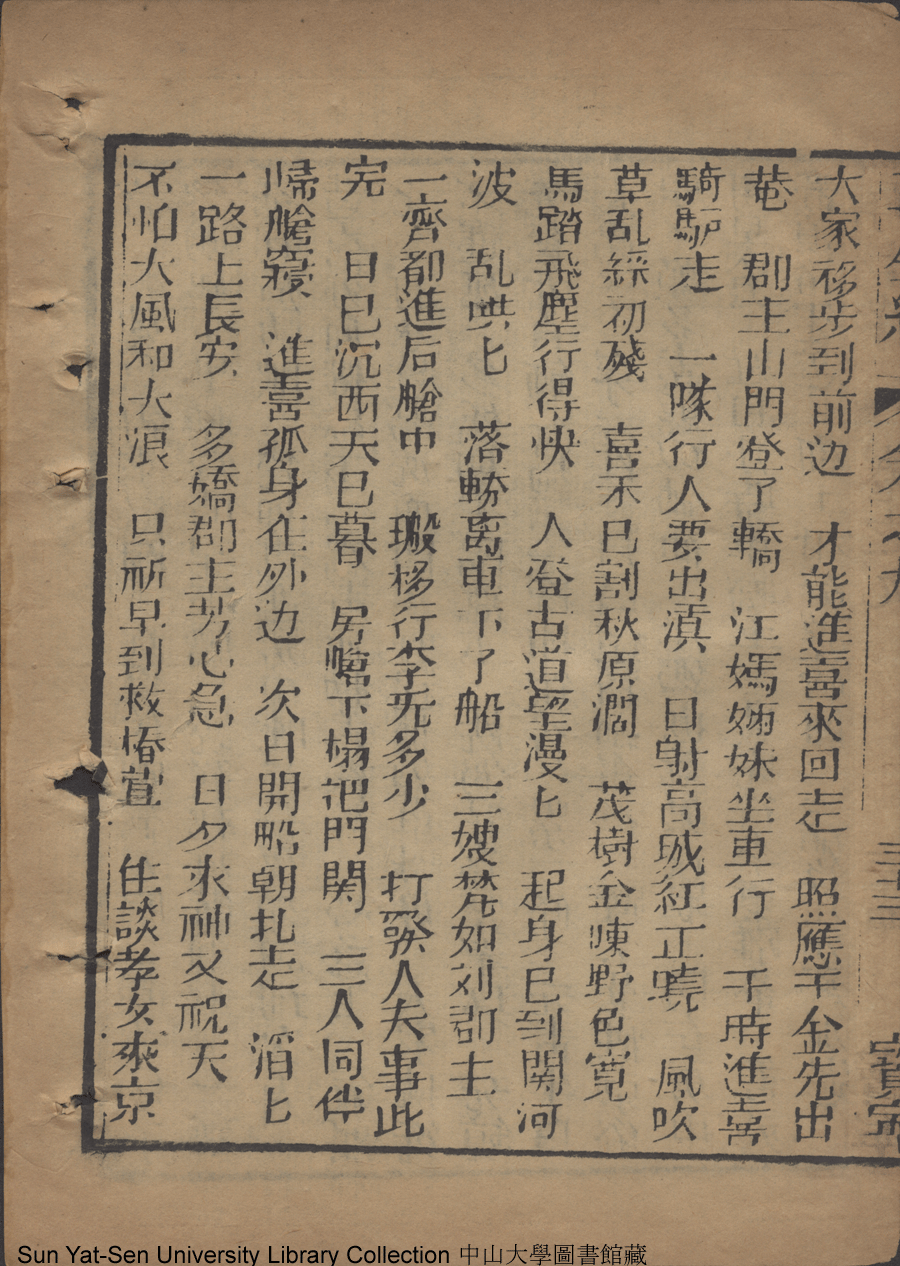 大家移步到前边　才能進喜來回走　照應千金先出
菴　郡主山門登了轎　江媽姊妹坐車行　千時進喜
騎馿走　一隊行人要出滇　日射高城紅正曉　風吹
草乱綵初殘　喜禾已割秋原濶　茂樹金陳野色寬
馬踏飛塵行得快　人登古道望漫匕　起身已到関河
波　乱哄匕　落轎离車下了船　三嫂梵如刘郡主
一齊都進后艙中　搬移行李旡多少　打發人夫事此
完　日已沉西天已暮　房艙下榻把門関　三人同伴
帰艙寢　進喜孤身在外边　次日開船朝扎走　滔匕
一路上長安　多嬌郡主芳心急　日夕求神又祝天
不怕大風和大浪　只祈早到救椿萱　住談孝女來京
Sun Yat-Sen University Library Collection 中山大學圖書館藏